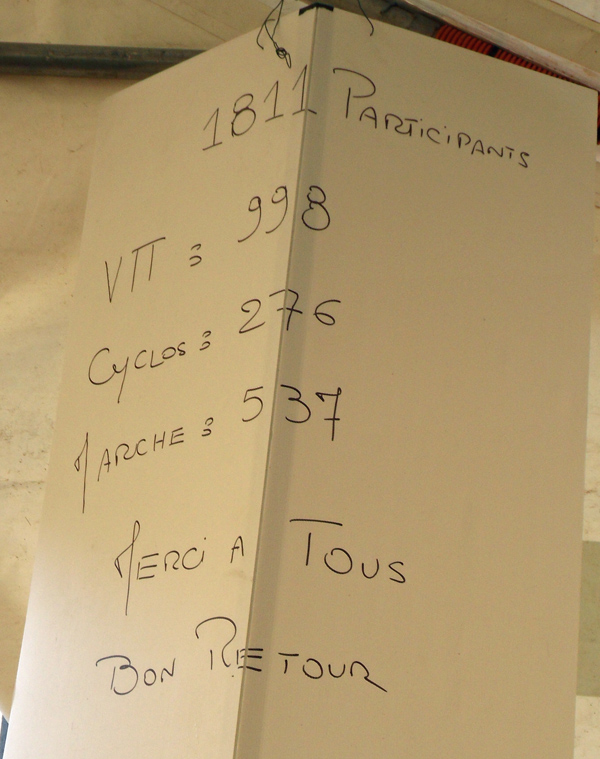 1811 PARTICIPANTS
VTT : 998
CYCLOS : 276
MARCHE : 537
MERCI A TOUS
BON RETOUR